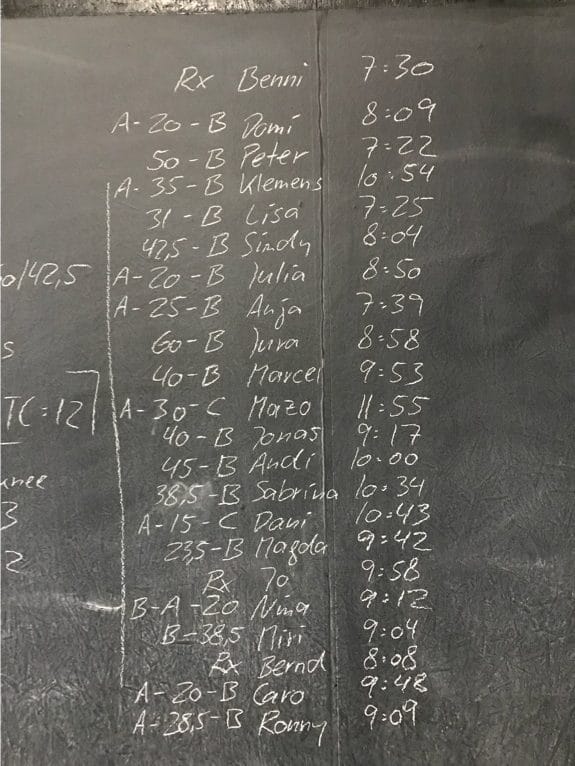 Rx Benni 7:30
A-20-B Domi 8:09
50-B Peter 7:22
A-35-B Klemens 10:54
31-B Lisa 7:25
42,5-B Sindy 8:04
0/42,5 A-20-B Julia 8:50
A-25-B Anja 7:39
s 60-B Jura 8:58
40-B Marcel 9:53
TC=12 A-30-C Mazo 11:55
40-B Jonas 9:17
45-B Andi 10:00
38,5-B Sabrina 10:34
3 A-15-C Dani 10:43
23,5-B Magda 9:42
2 Rx Jo 9:58
B-A-20 Nina 9:12
B-38,5 Miri 9:04
Rx Bernd 8:08
A-20-B Caro 9:48
A-28,5-B Ronny 9:09